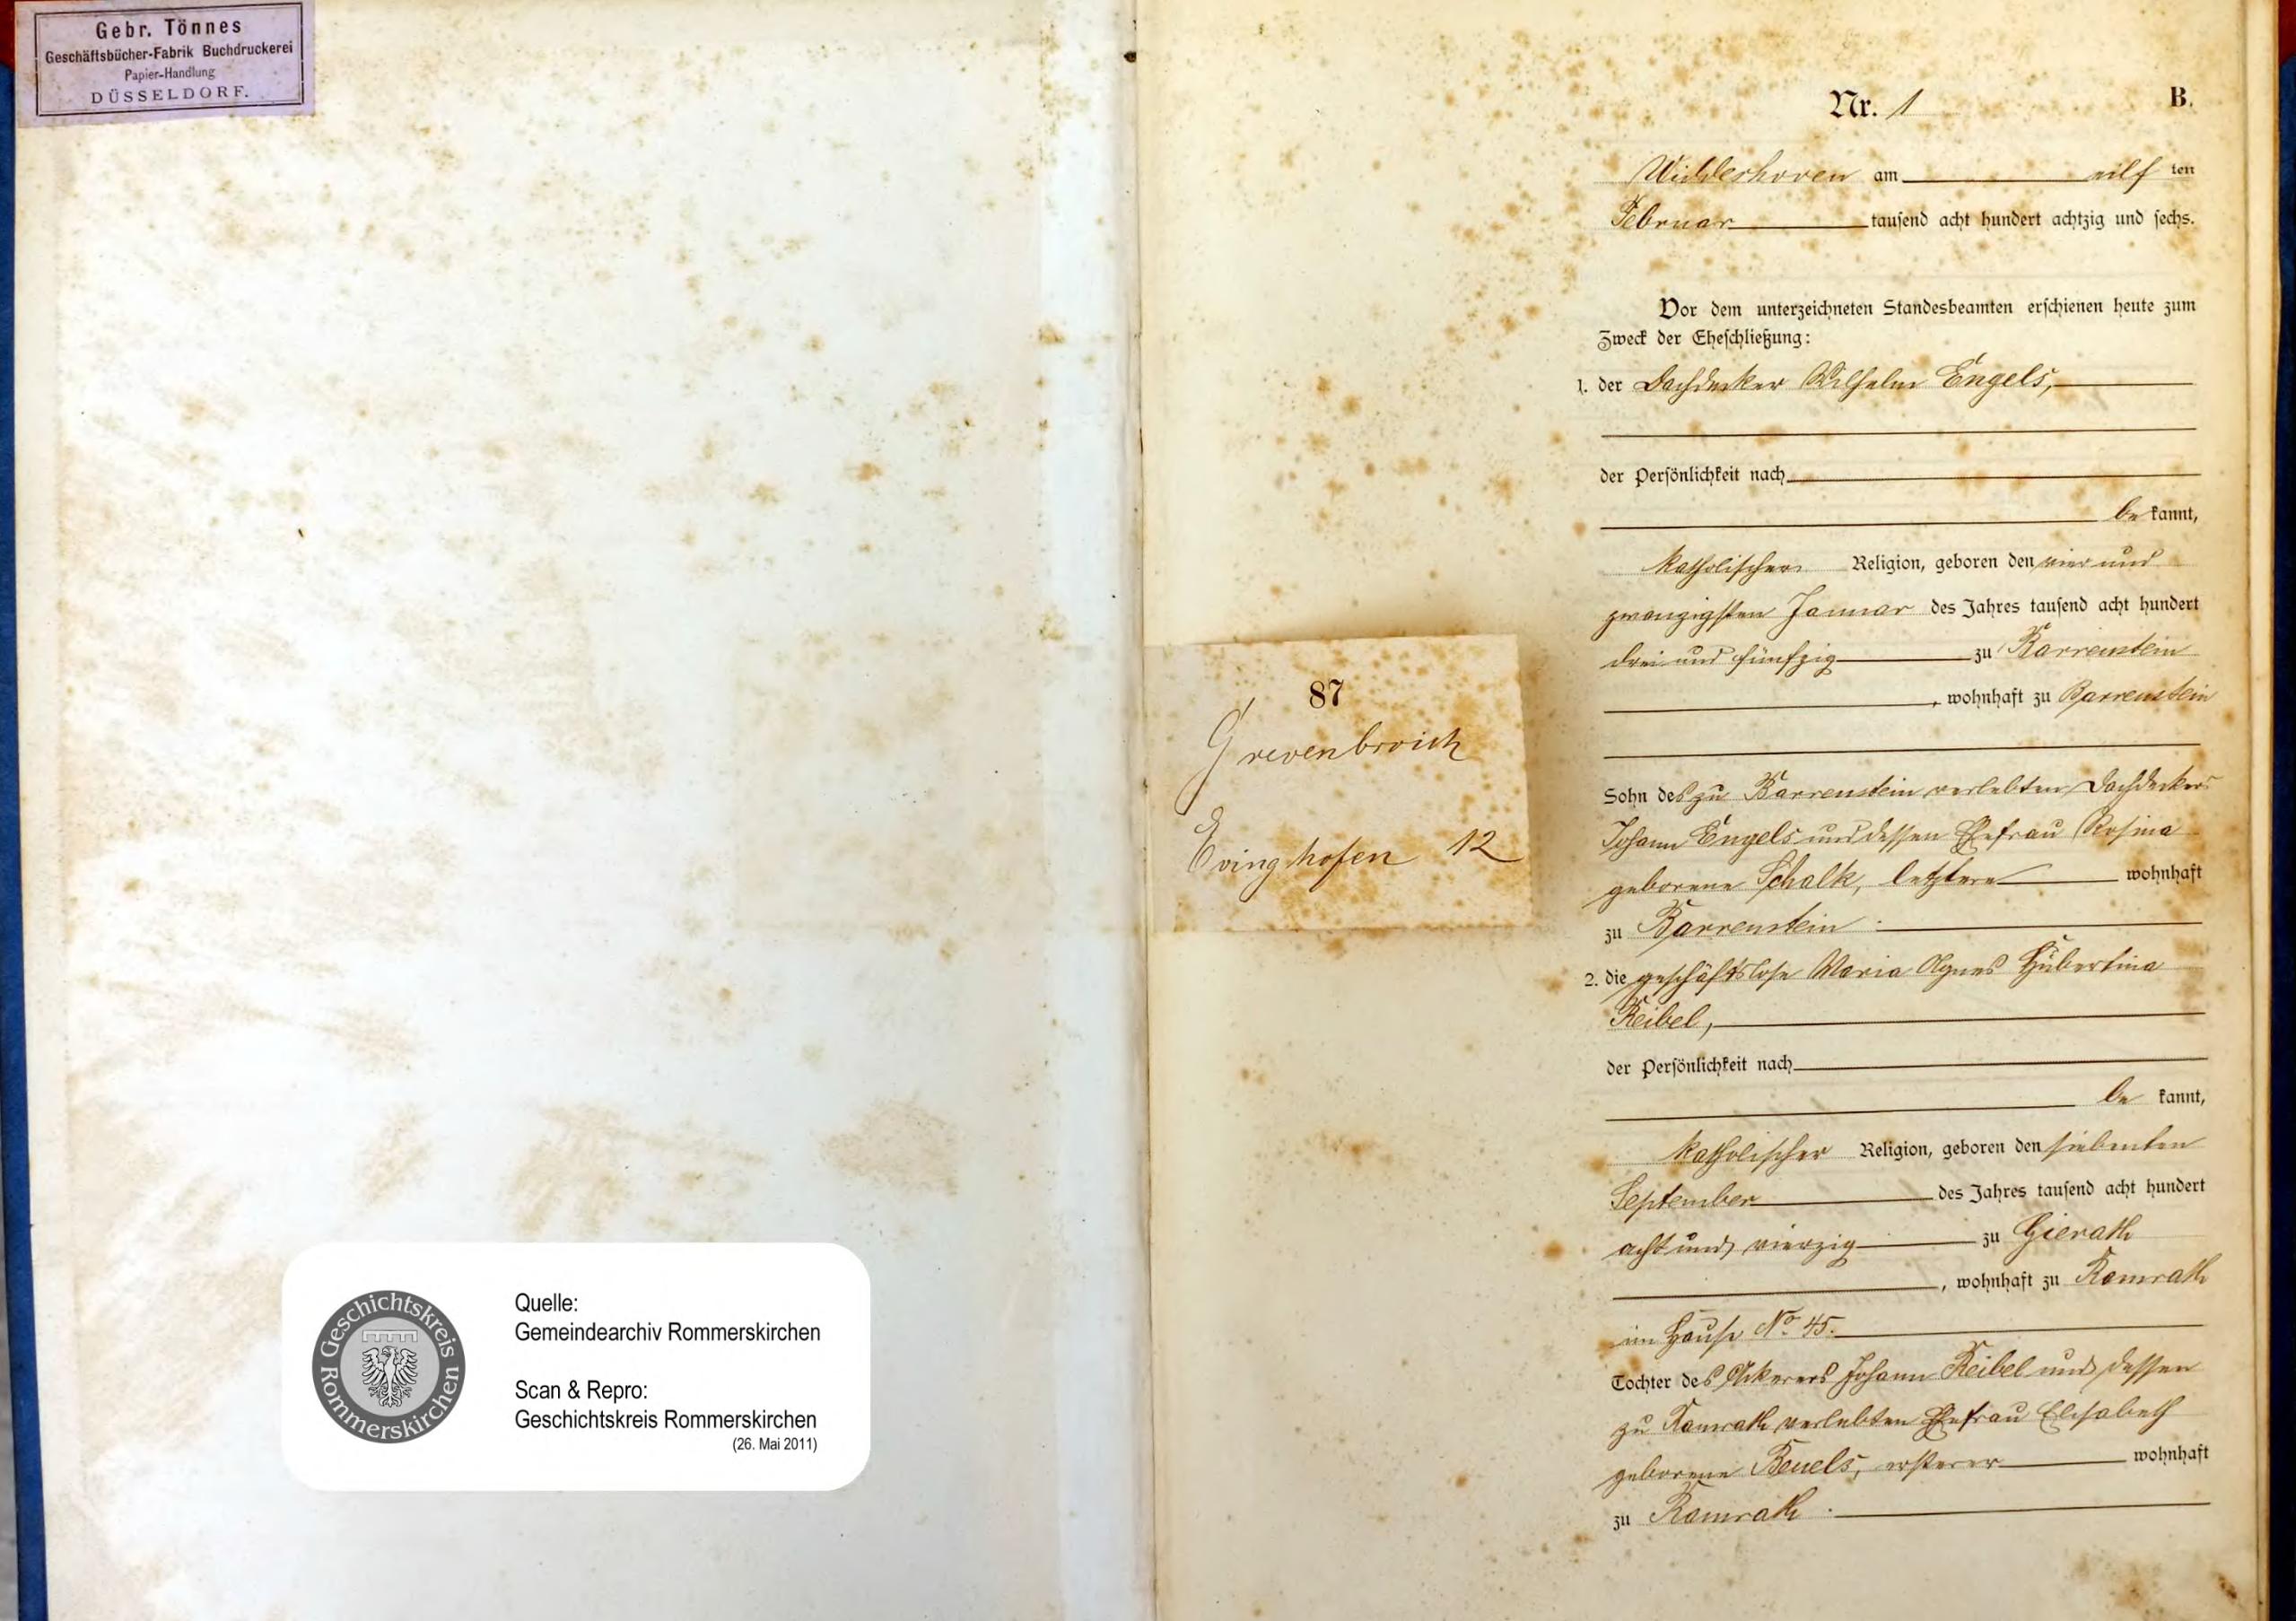 Gebr. Tönnes
Geschäftsbücher-Fabrik Buchdruckerei
Papier-Handlung
DÜSSELDORF.
Geschichtskreis Rommerskirchen
Quelle:
Gemeindearchiv Rommerskirchen
Scan & Repro:
Geschichtskreis Rommerskirchen
(26. Mai 2011)
87
Grevenbroich
Evinghofen 12
Nr. 1 B.
Widdeshoven am eilf ten
Februar tausend acht hundert achtzig und sechs.
Vor dem unterzeichneten Standesbeamten erschienen heute zum
Zweck der Eheschließung:
1. der Dachdecker Wilhelm Engels,
der Persönlichkeit nach
be kannt,
katholischer Religion, geboren den vier und
zwanzigsten Januar des Jahres tausend acht hundert
drei und fünfzig zu Barrenstein
, wohnhaft zu Barrenstein
Sohn des zu Barrenstein verlebten Dachdeckers
Johann Engels und dessen Ehefrau Rosina
geborene Schalk, letztere wohnhaft
zu Barrenstein
2. die geschäftslose Maria Agnes Hubertina
Reibel,
der Persönlichkeit nach
be kannt,
katholischer Religion, geboren den siebenten
September des Jahres tausend acht hundert
acht und vierzig zu Gierath
, wohnhaft zu Ramrath
im Hause No. 45.
Tochter des Ackerers Johann Reibel und dessen
zu Ramrath verlebten Ehefrau Elisabeth
geborene Beuels, ersterer wohnhaft
zu Ramrath